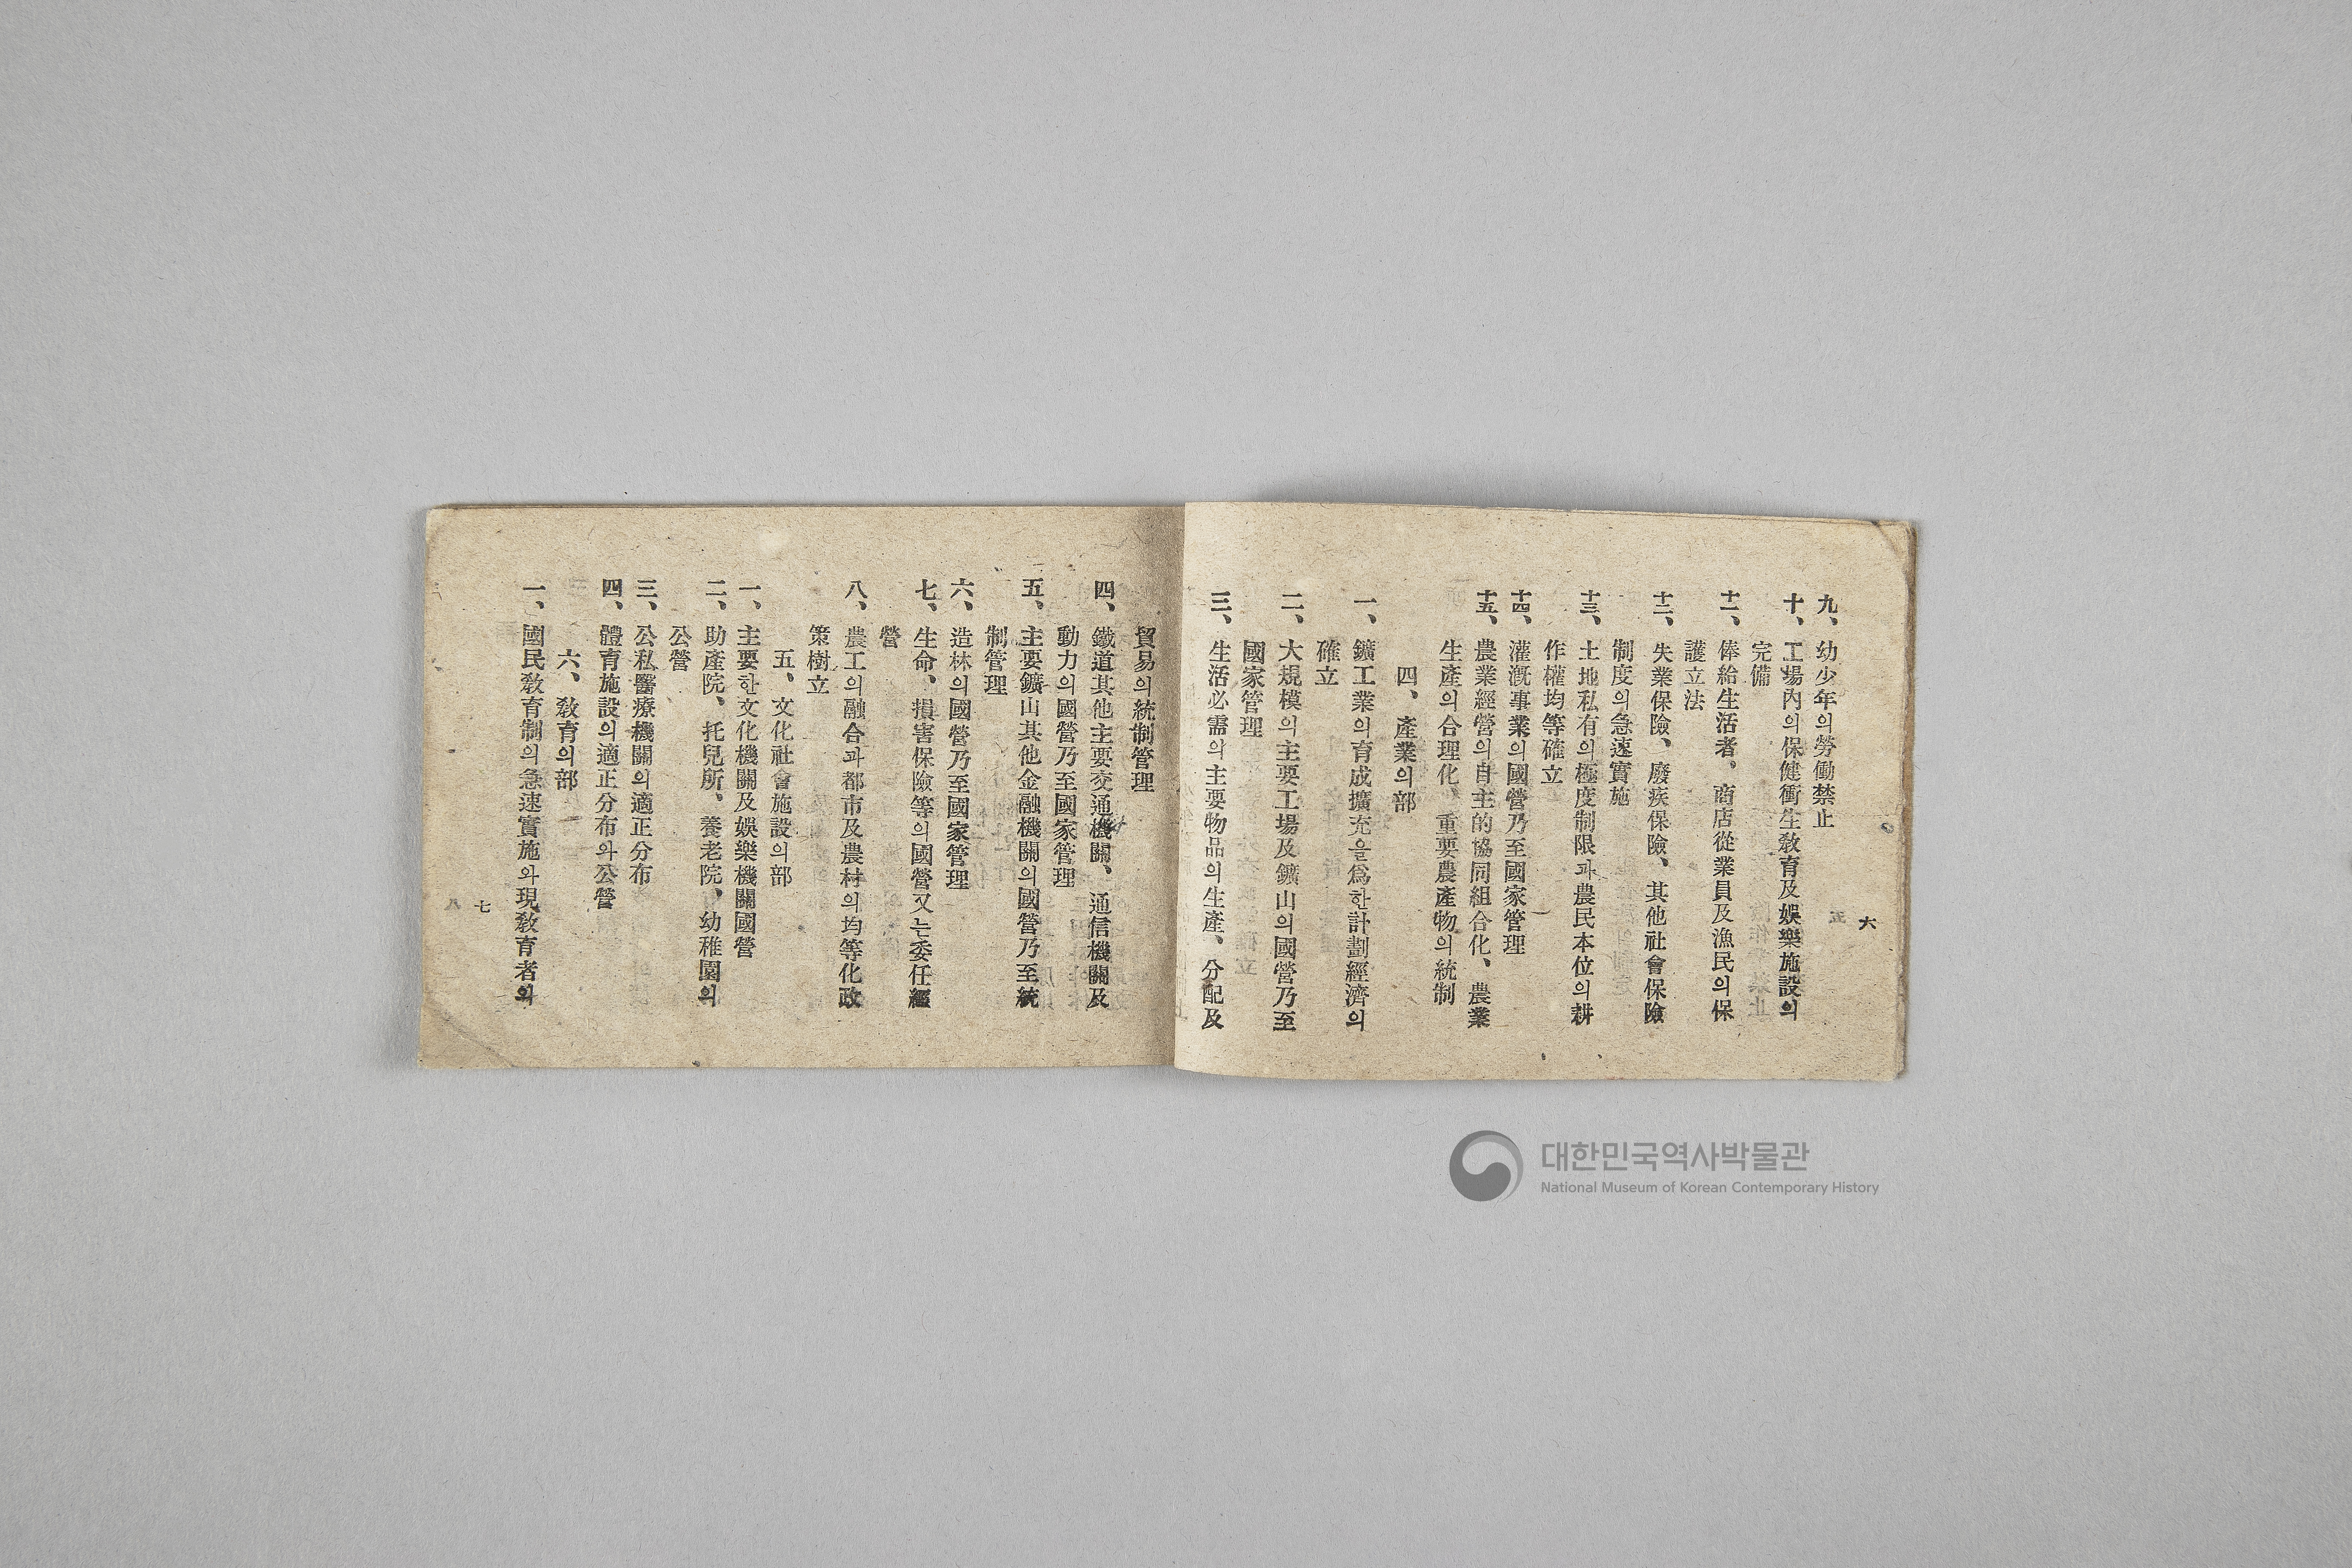 六
九、幼少年의勞働禁止
十、工場內의保健衝生敎育及娛樂施設의
完備
十一、俸給生活者、商店從業員及漁民의保
護立法
十二、失業保險、廢疾保險、其他社會保險
制度의急速實施
十三、土地私有의極度制限과農民本位의耕
作權均等確立
十四、灌漑事業의國營乃至國家管理
十五、農業經營의自主的協同組合化、農業
生產의合理化、重要農產物의統制
四、產業의部
一、鑛工業의育成擴充을爲한計劃經濟의
確立
二、大規模의主要工場及鑛山의國營乃至
國家管理
三、生活必需의主要物品의生產、分配及
貿易의統制管理
四、鐵道其他主要交通機關、通信機關及
動力의國營乃至國家管理
五、主要鑛山其他金融機關의國營乃至統
制管理
六、造林의國營乃至國家管理
七、生命、損害保險等의國營又는委任經
營
八、農工의融合과都市及農村의均等化政
策樹立
五、文化社會施設의部
一、主要한文化機關及娛樂機關國營
二、助產院、托兒所、養老院、幼稚園의
公營
三、公私醫療機關의適正分布
四、體育施設의適正分布와公營
六、敎育의部
一、國民敎育制의急速實施와現敎育者의
七
대한민국역사박물관
National Museum of Korean Contemporary History